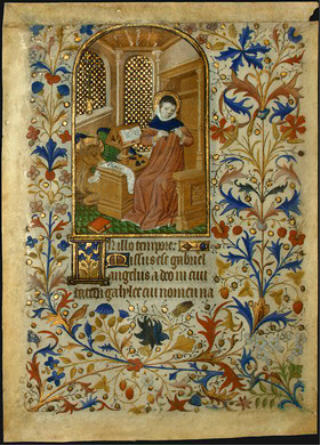 In illo tempore:
Missus est gabriel
angelus a deo in ciui
tatem galylee cui nomen na